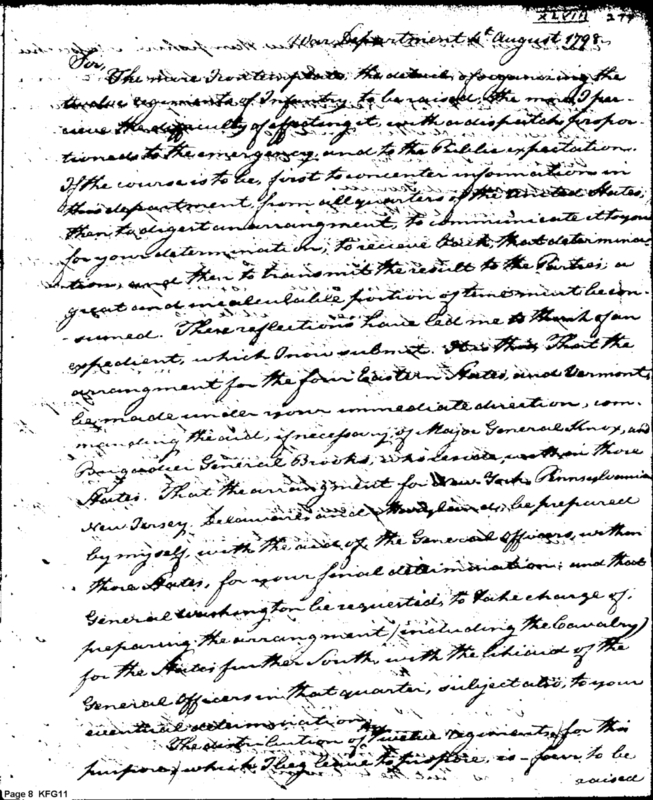 XLVIII 277
War Department 4th August 1798.
Sir,
The more I contemplate, the details, of organizing the
twelve regiments of Infantry to be raised, the more I per-
ceive the difficulty of effecting it, with a dispatch, propor-
tioned to the emergency, and to the Public expectation.
If the course is to be, first to concenter information in
this department, from all quarters of the United States,
then to digest an arrangment, to communicate it to you
for your determination, to recieve back, that determina-
tion, and then to transmit the result to the Parties, a
great and incalculable portion of time must be con-
sumed. These reflections have led me to think of an
expedient, which I now submit. It is this, That the
arrangment for the four Eastern States, and Vermont,
be made under your immediate direction, com-
manding the aid, if necessary of Major General Knox, and
Brigadier General Brooks, who reside within those
States. That the arrangment for New York, Pennsylvania
New Jersey, Delaware, and Maryland, be prepared
by myself, with the aid of the General Officers, within
those States, for your final determination; and that
General Washington be requested, to take charge of,
preparing the arrangment (including the Cavalry)
for the States further South, with the like aid of the
General Officers in that quarter, subject also, to your
eventual determination.
The distribution of the Twelve regiments, for this
purpose, which I beg leave to propose, is – four, to be
raised
Page 8 KFG11